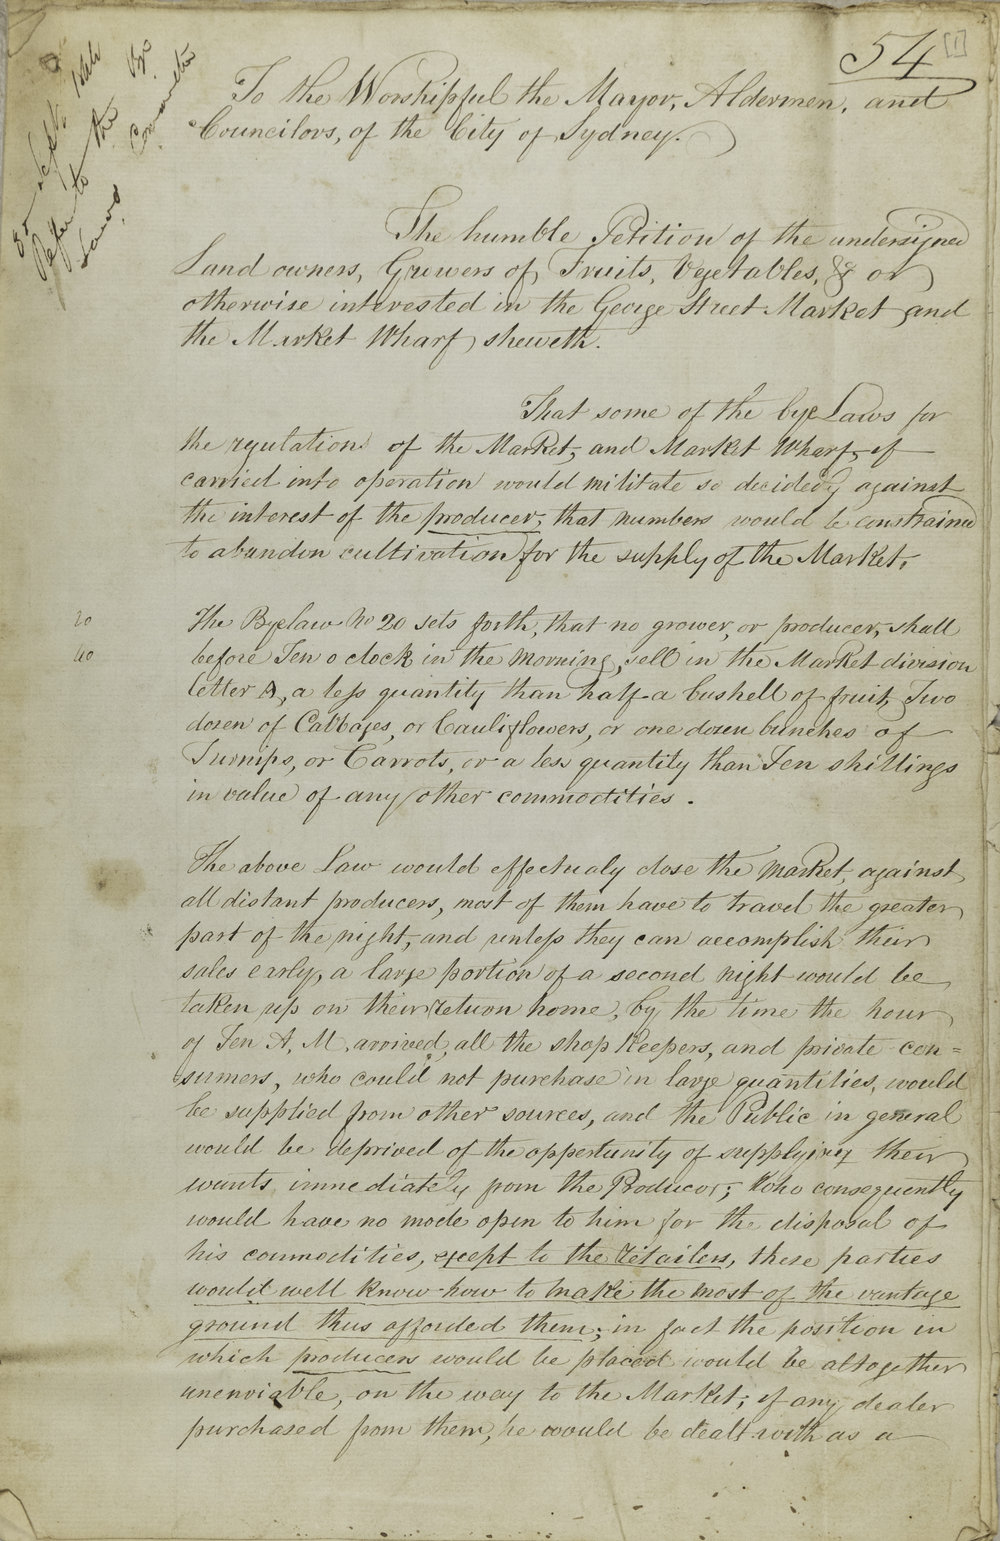 54 [1]
Sept. 1844
Refer to the Bye
Laws Committee
To the Worshipful the Mayor, Aldermen, and
Councilors, of the City of Sydney.
The humble Petition of the undersigned
Land owners, Growers of Fruits, Vegetables, &c or
otherwise interested in the George Street Market and
the Market Wharf, sheweth.
That some of the bye Laws for
the regulations of the Market, and Market Wharf, if
carried into operation would militate so decidedly against
the interest of the producer, that numbers would be constrained
to abandon cultivation for the supply of the Market.
20
40
The Byelaw No 20 sets forth, that no grower, or producer, shall
before Ten o clock in the Morning, sell in the Market division
letter A, a less quantity than half a bushell of fruit, Two
dozen of Cabbages, or Cauliflowers, or one dozen bunches of
Turnips, or Carrots, or a less quantity than Ten shillings
in value of any other commodities.
The above Law would effectualy close the Market against
all distant producers, most of them have to travel the greater
part of the night, and unless they can accomplish their
sales early, a large portion of a second night would be
taken up on their return home, by the time the hour
of Ten A, M, arrived, all the shop Keepers, and private con=
sumers, who could not purchase in large quantities, would
be supplied from other sources, and the Public in general
would be deprived of the oppertunity of supplying their
wants immediately from the Producer; Who consequently
would have no mode open to him for the disposal of
his commodities, except to the retailers, these parties
would well know how to make the most of the vantage
ground thus afforded them; in fact the position in
which producers would be placed would be altogether
unenviable, on the way to the Market; if any dealer
purchased from them, he would be dealt with as a